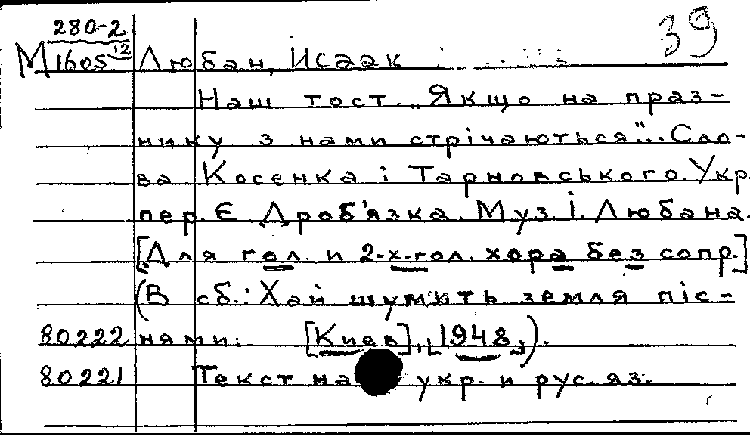 280-2
39
М1605 12 Любан, Исаак
Наш тост „Якщо на праз-
нику з нами стрічаються"... Сло-
ва Косенка і Тарновського. Укр.
пер. Є. Дроб'язка. Муз. І. Любана.
[Для гол. и 2-х-гол. хора без сопр.]
(В сб.: Хай шумить земля піс-
80222 нями. [Киев], [1948].).
80221 Текст на укр. и рус. яз.